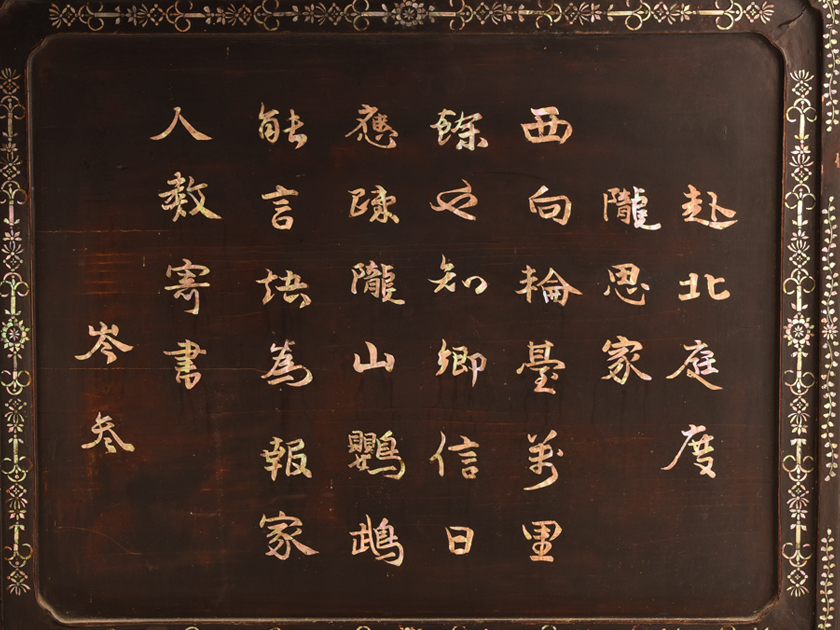 赴北庭度
隴思家
西向輪臺萬里
餘也知鄉信日
應疎隴山鸚鵡
能言為報家
人数寄書
岑參